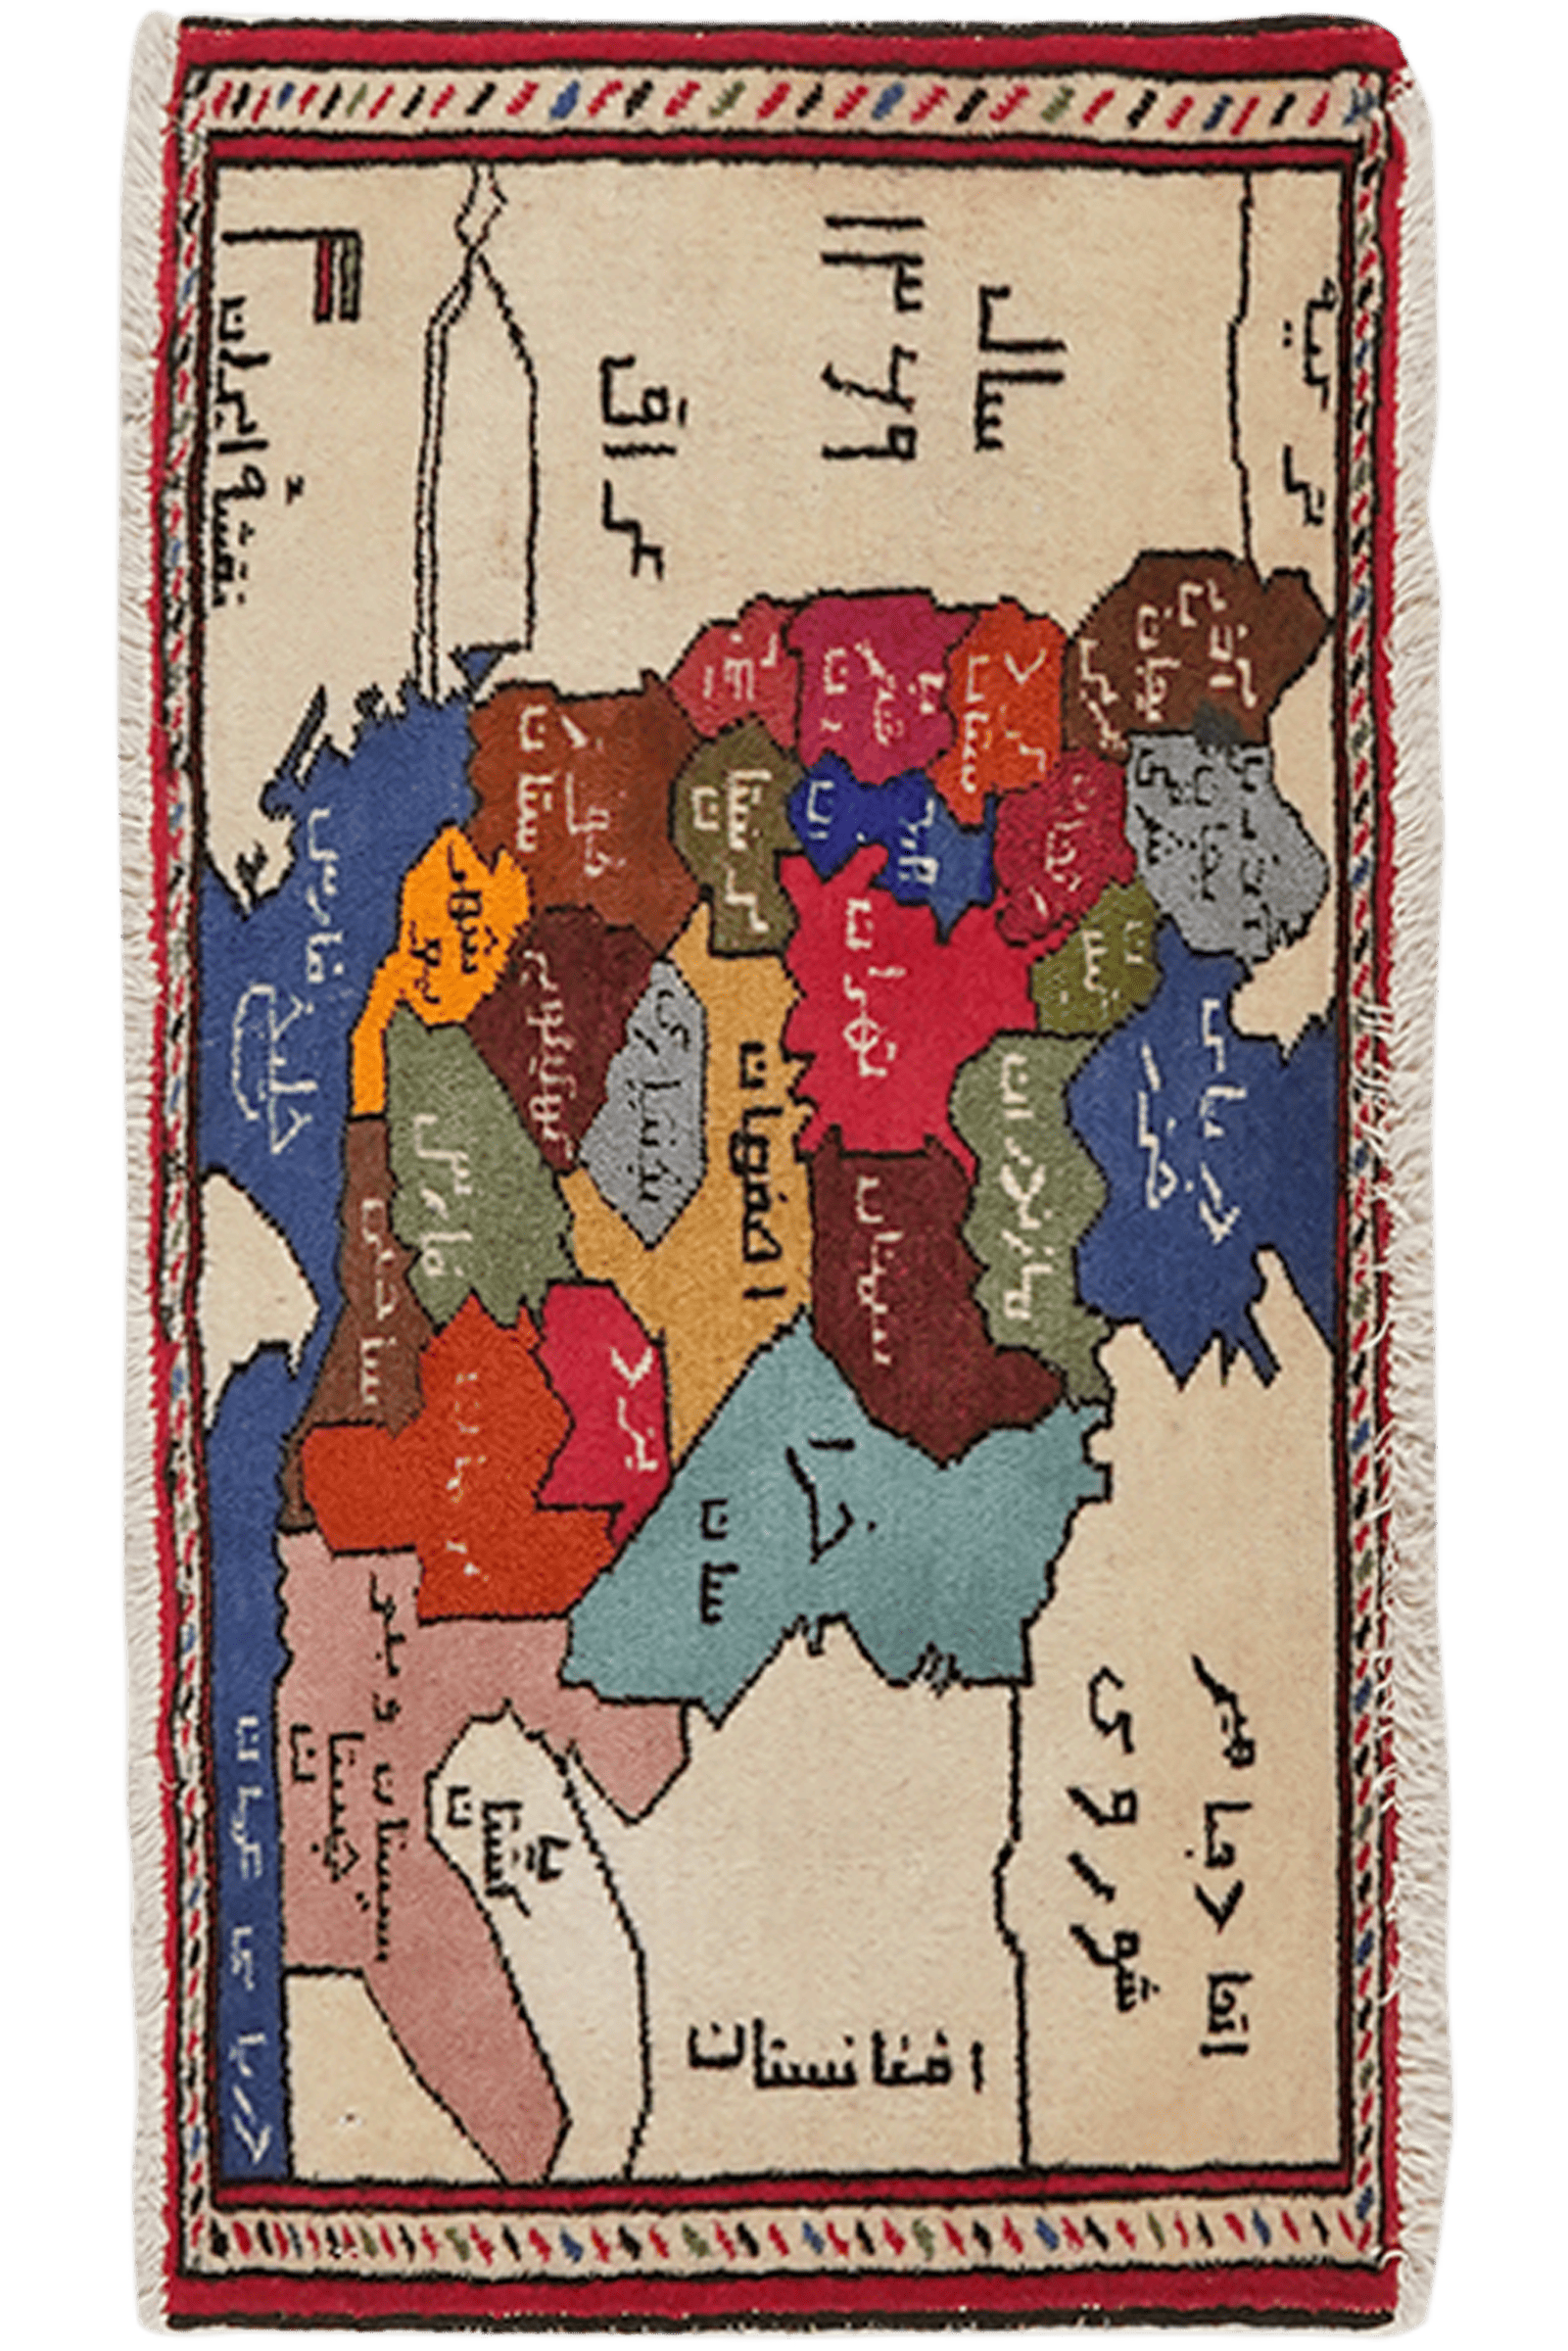 نقشۀ ایران
سال
۱۳۶۹
عراق
ترکیه
اتحاد جماهیر
شوروی
افغانستان
پاکستان
دریای عمان
خلیج
فارس
دریای
خزر
آذربایجان غربی
آذربایجان شرقی
کردستان
باختران
ایلام
خوزستان
لرستان
همدان
زنجان
گیلان
تهران
مازندران
سمنان
خراسان
اصفهان
بختیاری
کهکیلویه
بوشهر
فارس
یزد
کرمان
سیستان و بلوچستان